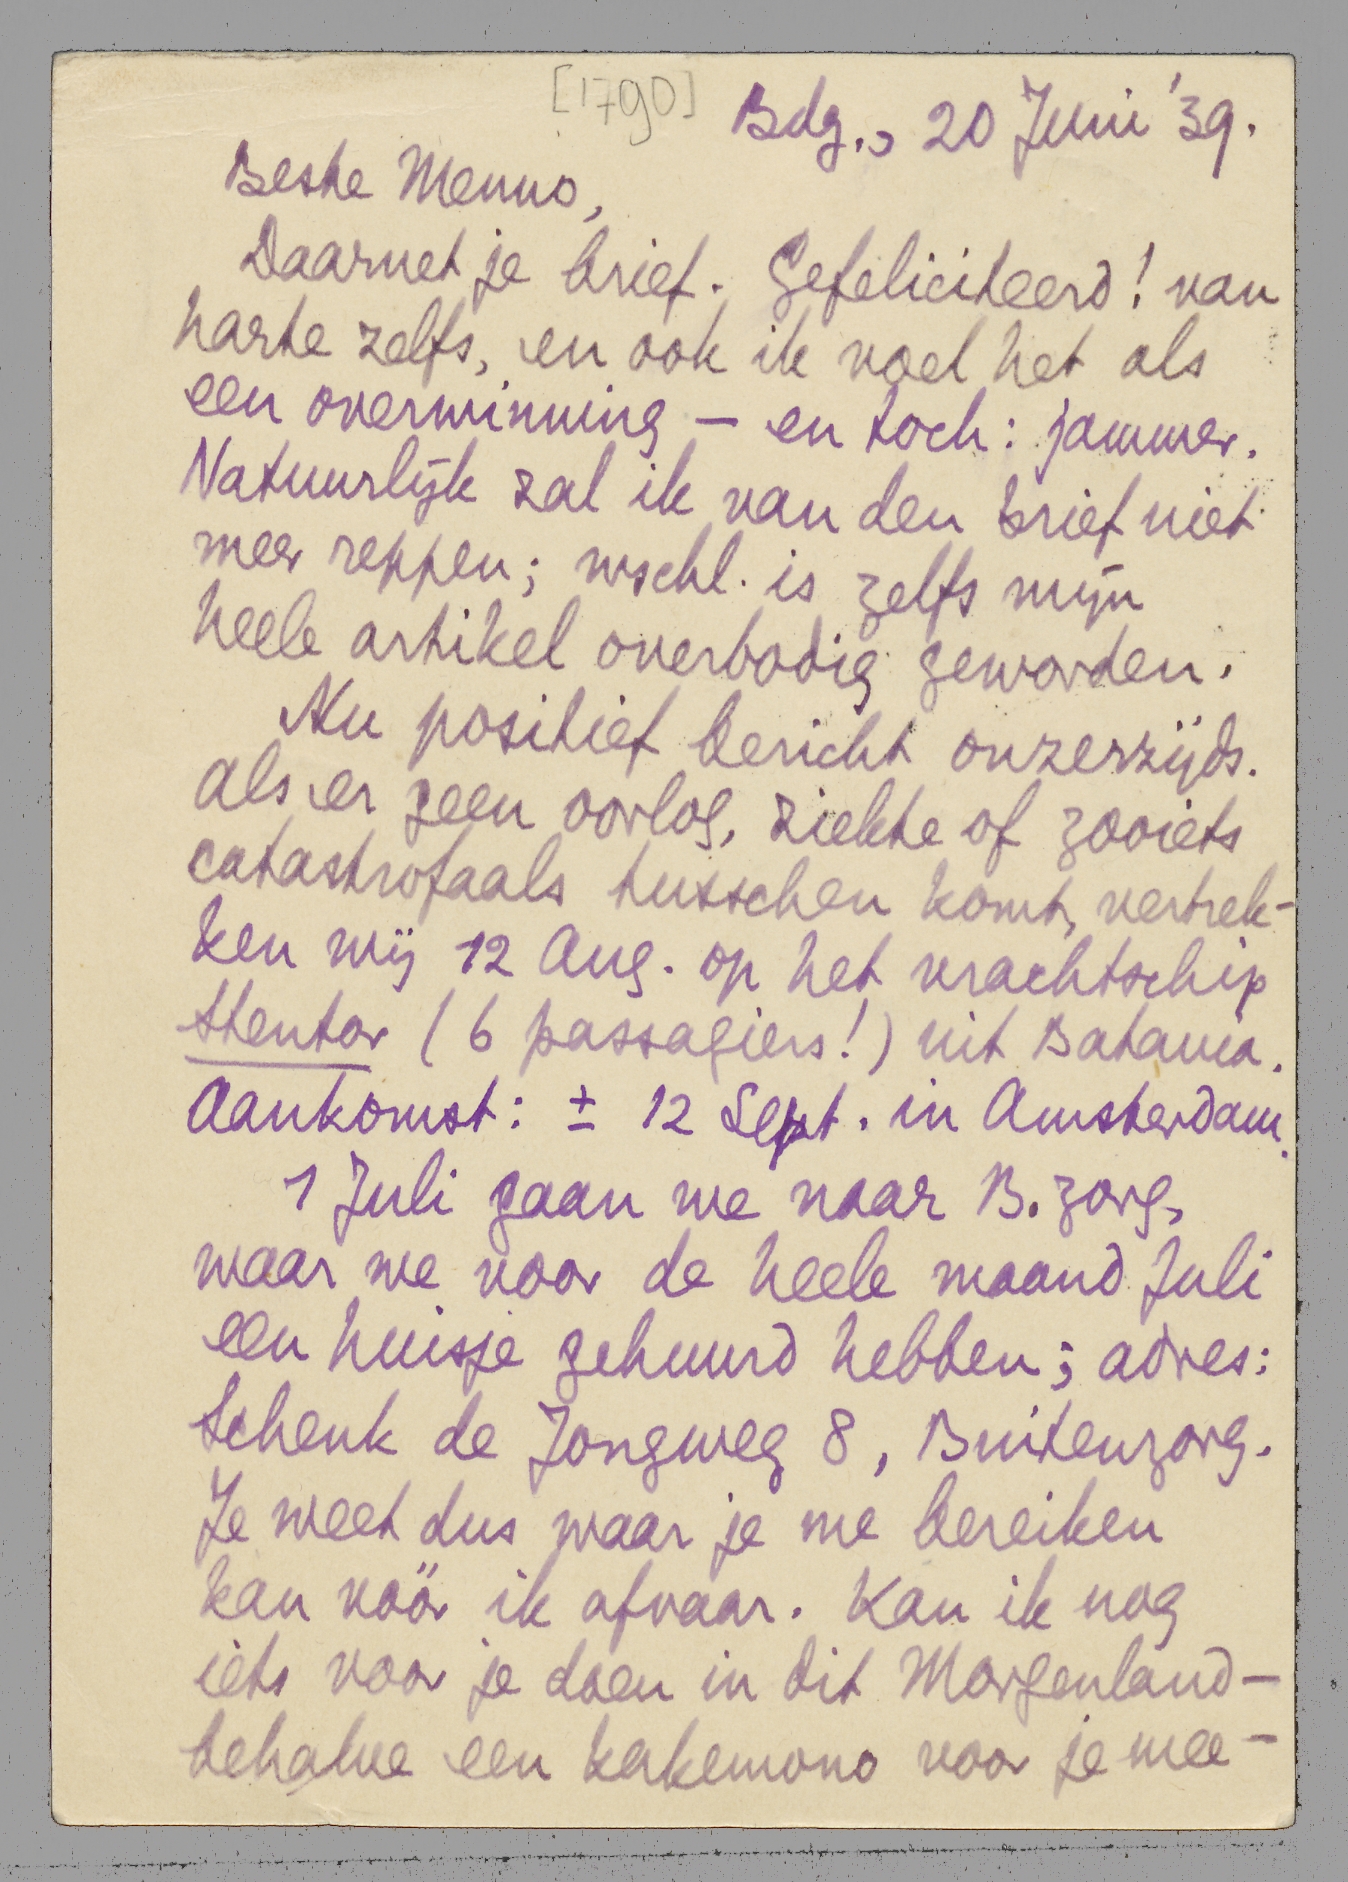 [1790]
Bdg., 20 Juni '39.
Beste Menno,
Daarnet je brief. Gefeliciteerd! van
harte zelfs, en ook ik voel het als
een overwinning – en toch: jammer.
Natuurlijk zal ik van den brief niet
meer reppen; wschl. is zelfs mijn
heele artikel overbodig geworden.
Nu positief bericht onzerzijds.
Als er geen oorlog, ziekte of zooiets
catastrofaals tusschen komt, vertrek-
ken wij 12 Aug. op het vrachtschip
Stentor (6 passagiers!) uit Batavia.
Aankomst: ± 12 Sept. in Amsterdam.
1 Juli gaan we naar B.zorg,
waar we voor de heele maand Juli
een huisje gehuurd hebben; adres:
Schenk de Jongweg 8, Buitenzorg.
Je weet dus waar je me bereiken
kan vóór ik afvaar. Kan ik nog
iets voor je doen in dit Morgenland –
behalve een kakemono voor je mee-